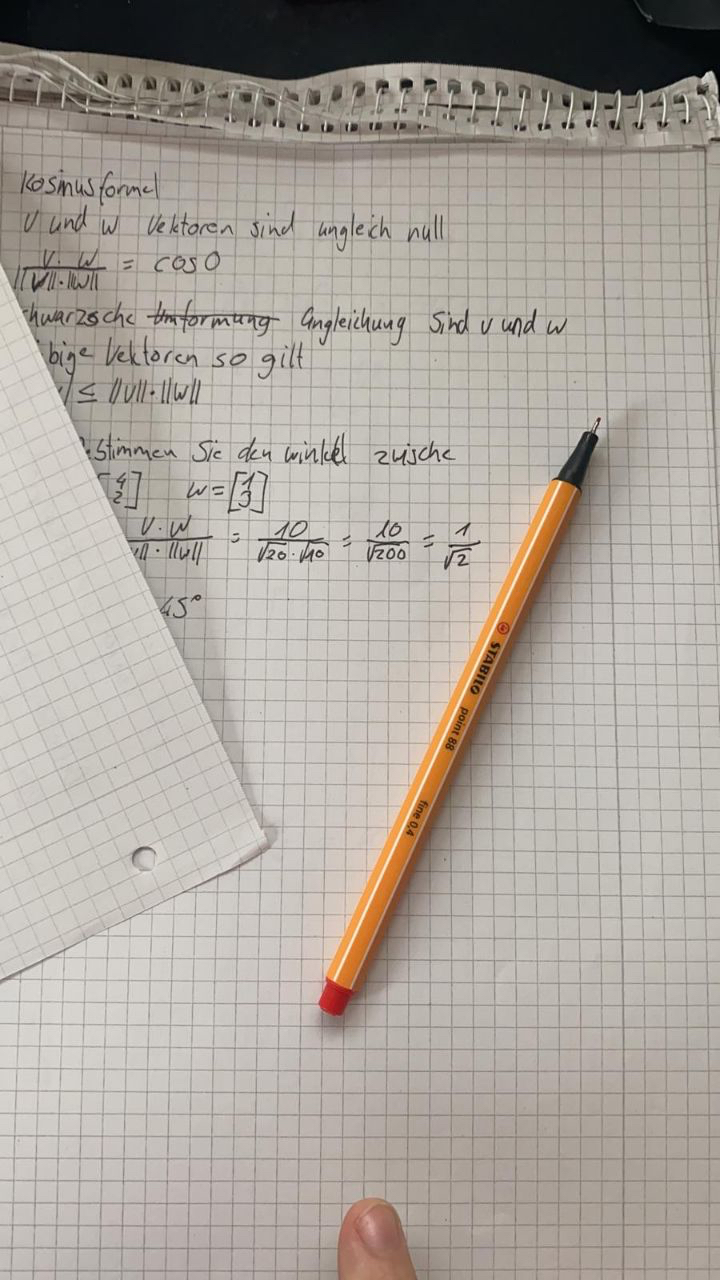 Kosinusformel
v und w Vektoren sind ungleich null
v · w / ||v|| · ||w|| = cos θ
hwarzsche Umformung Ungleichung sind v und w
bige Vektoren so gilt
| ≤ ||v|| · ||w||
stimmen Sie den winkel zwische
[4 2] w = [1 3]
v · w / || · ||w|| = 10 / √20 · √10 = 10 / √200 = 1 / √2
45°
STABILO point 88 fine 0,4